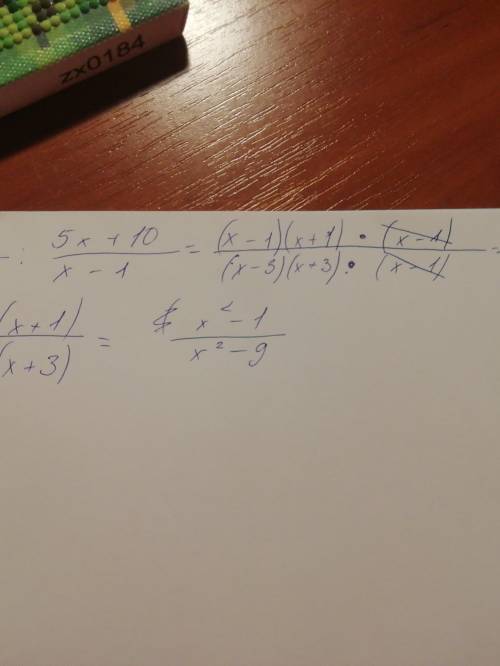 zx0184
: (5x + 10)/(x - 1) = ((x - 1)(x + 1) • (x - 1))/((x - 3)(x + 3) • (x - 1)) =
(x + 1)/(x + 3) = (x² - 1)/(x² - 9)